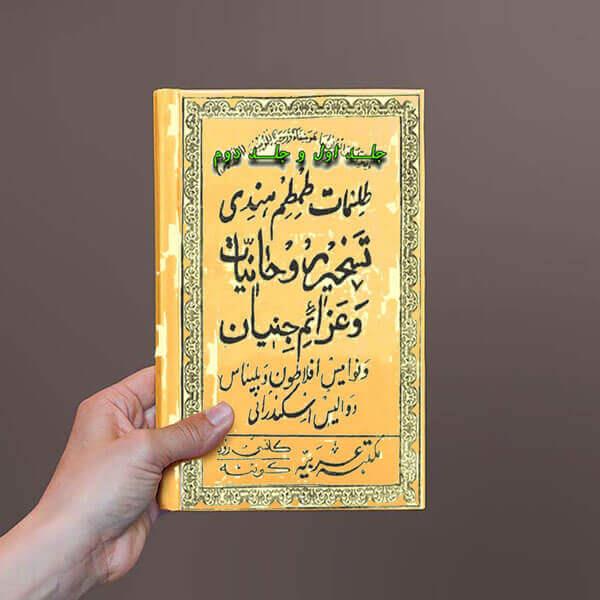 جلد اول و جلد دوم
طلسمات طمطم هندی
تسخیر روحانیات
وَعَزائِم جنیان
و نوامیس افلاطون و بلیناس
دوالیس اسکندرانی
مکتبہ عربیہ کانسی روڈ
کوئٹہ